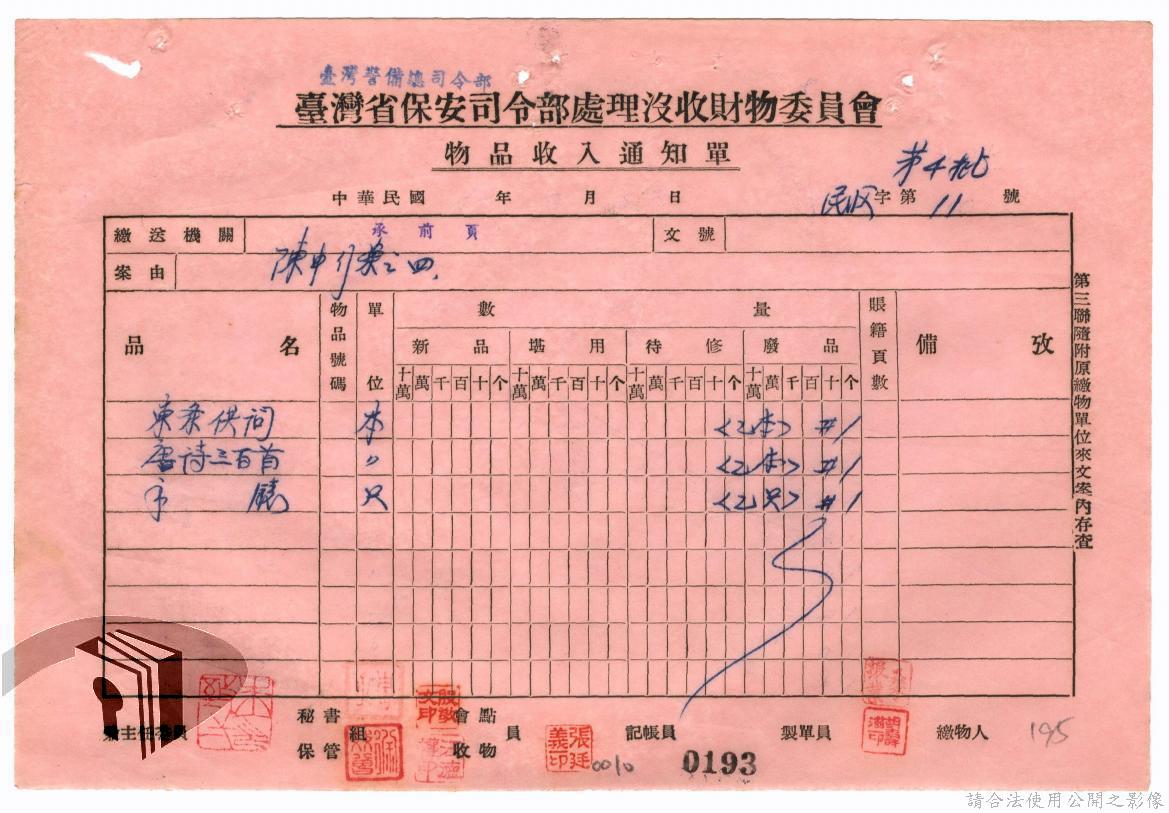 臺灣警備總司令部
臺灣省保安司令部處理沒收財物委員會
物品收入通知單
第4批
中華民國 年 月 日 字第 11 號
繳送機關 承前頁 文號
案由 陳中行案之四
品名 物品號碼 單位 數量 賬籍頁數 備攷
新品 堪用 待修 廢品
十萬 萬 千 百 十 个 十萬 萬 千 百 十 个 十萬 萬 千 百 十 个 十萬 萬 千 百 十 个
本 <乙本> #1
唐詩三百首 〃 <乙本> #1
只 <乙只> #1
第三聯隨附原繳物單位來文案內存查
兼主任委員 秘書 組 會點 員 記帳員 製單員 繳物人 195
保管 收物
張廷義印
0010
0193
請合法使用公開之影像